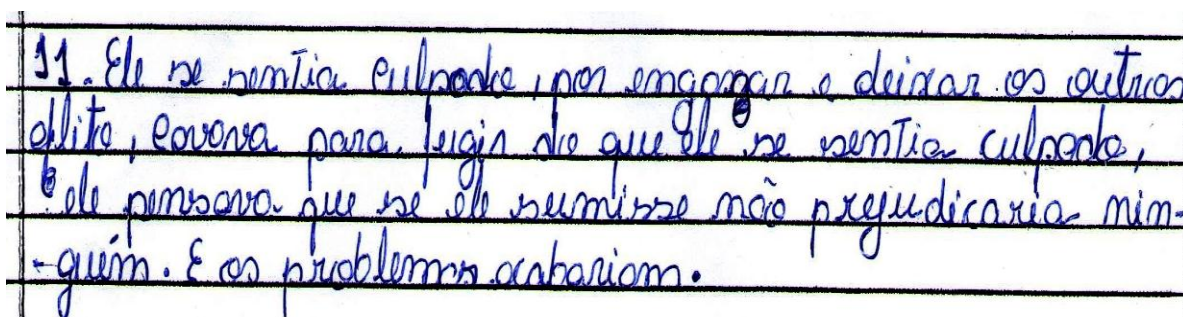 11. Ele se sentia culpado, por engasgar e deixar os outros
aflito, cavava para fugir do que ele se sentia culpado,
ele pensava que se ele sumisse não prejudicaria nin-
-guém. E os problemas acabariam.